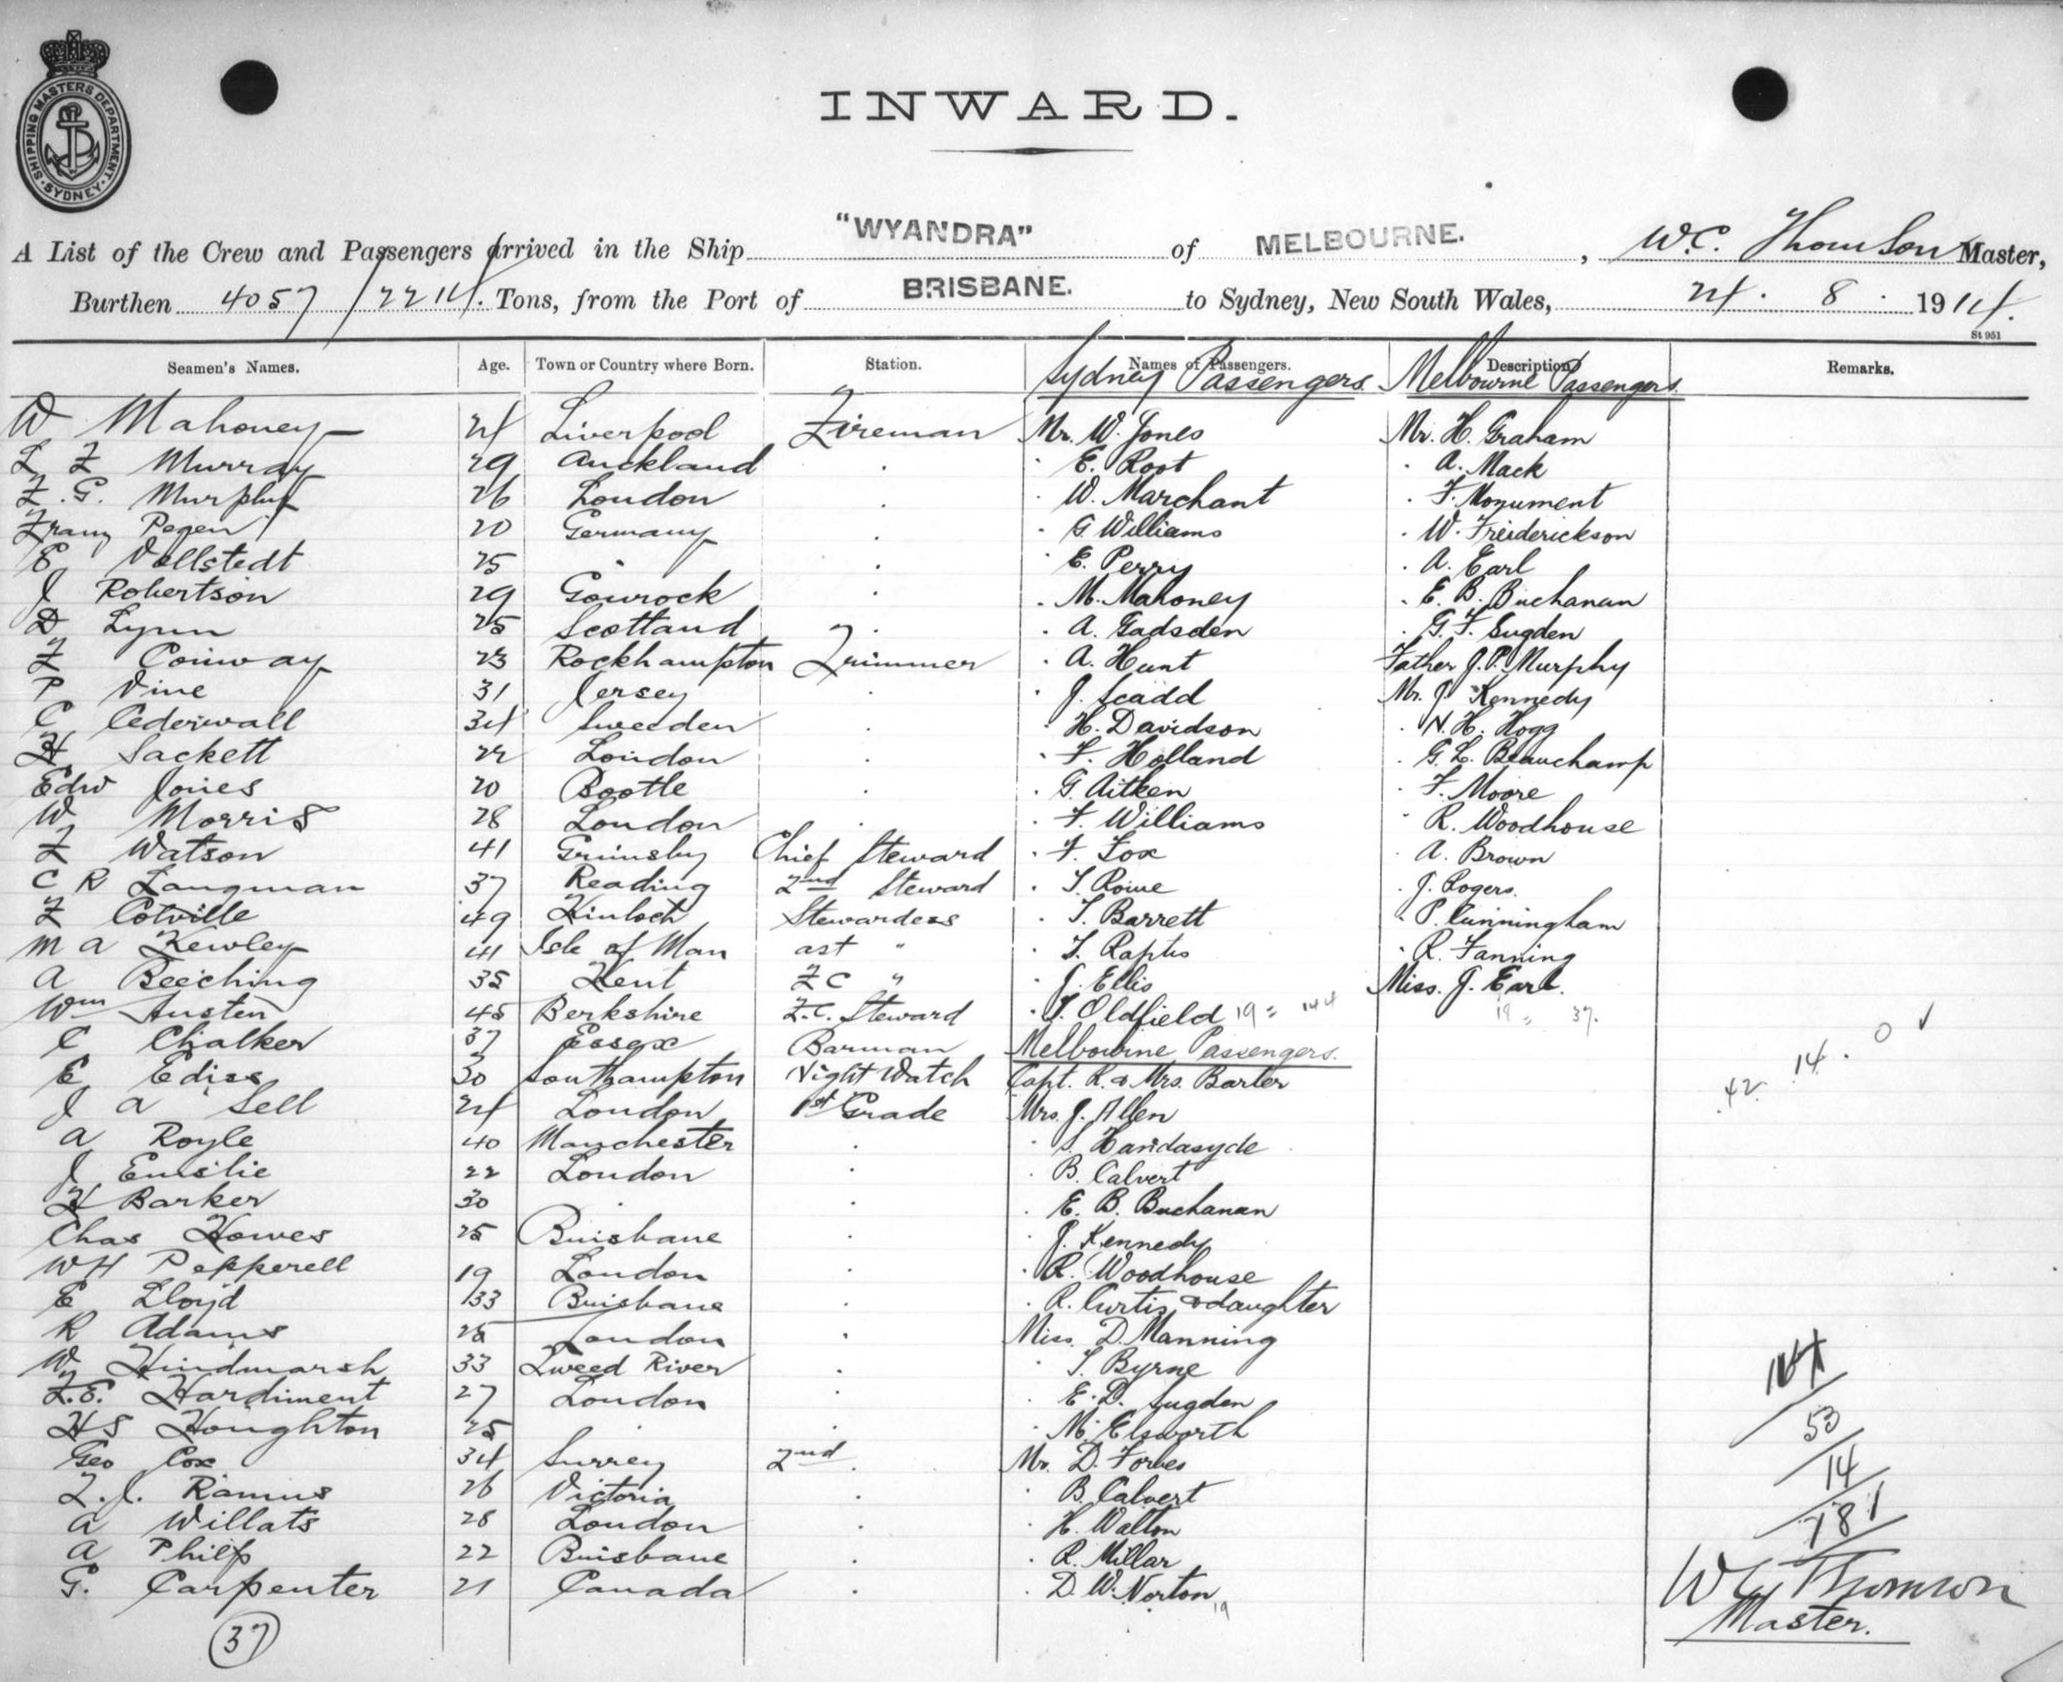 SHIPPING MASTERS DEPARTMENT
SYDNEY
INWARD.
A List of the Crew and Passengers arrived in the Ship "WYANDRA" of MELBOURNE. , W.C. Thomson Master,
Burthen 4057/2214. Tons, from the Port of BRISBANE. to Sydney, New South Wales, 24. 8. 1914.
St 951
Seamen's Names. Age. Town or Country where Born. Station. Names of Passengers. Description Remarks.
Sydney Passengers. Melbourne Passengers.
W Mahoney 24 Liverpool Fireman Mr. W. Jones Mr. H. Graham
L F Murray 29 Auckland . · E. Root · A. Mack
F. G. Murphy 26 London . · W. Marchant · F. Monument
Franz Pegen 20 Germany . · G. Williams · W. Freiderickson
E Vollstedt 25 · . · E. Perry · A. Earl
J Robertson 29 Gourock . · M. Mahoney · E. B. Buchanan
D Lynn 25 Scotland . · A. Gadsden · G. F. Sugden
F Conway 23 Rockhampton Trimmer · A. Hunt Father J. P. Murphy
P Vine 31 Jersey . · J. Scadd Mr. J. Kennedy
C Cederwall 34 Sweeden . · H. Davidson · N. H. Hogg
H Sackett 22 London . · F. Holland · G. L. Beauchamp
Edw Jones 20 Bootle . · G. Aitken · F. Moore
W Morris 28 London . · F. Williams · R. Woodhouse
F Watson 41 Grimsby Chief Steward · F. Fox · A. Brown
C R Langman 37 Reading 2nd Steward · T. Rowe · J. Rogers.
F Colville 49 Kinloch Stewardess · T. Barrett · P. Cunningham
M A Kewley 41 Isle of Man ast " · T. Raptis · R. Fanning
A Beeching 35 Kent F C " · J. Ellis Miss. J. Earl.
Wm Austen 45 Berkshire F.C. Steward · T. Oldfield 19 = 144 18 = 37.
C Chalker 37 Essex Barman Melbourne Passengers. 14 . 0 ✓
E Ediss 30 Southampton Night Watch Capt. R. & Mrs. Barter 42
J A Sell 24 London 1st Grade Mrs. J. Allen
A Royle 40 Manchester . · S. Handasyde
J Emslie 22 London . · B. Calvert
H Barker 30 · . · E. B. Buchanan
Chas Howes 25 Brisbane . · J. Kennedy
W H Pepperell 19 London · R. Woodhouse
E Lloyd 33 Brisbane . · R. Curtis & daughter
R Adams 25 London . Miss. D. Manning
W Hindmarsh 33 Tweed River . · T. Byrne
F. E. Hardiment 27 London . · E. D. Sugden
H S Houghton 25 . . · M. Elsworth 53
Geo Cox 34 Surrey 2nd . Mr. D. Forbes 14
F. J. Ramus 26 Victoria . · B. Calvert 181
A Willats 28 London . · H. Walton
A Philp 22 Brisbane . · R. Millar
G. Carpenter 21 Canada . · D. W. Norton 19
W C Thomson
Master.
37